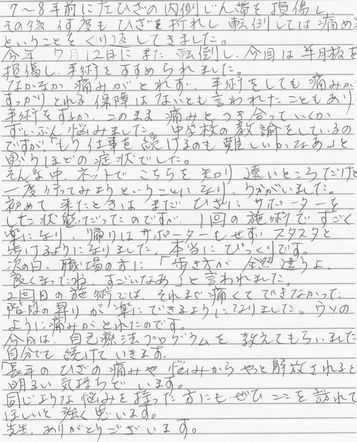 7～8年前に左ひざの内側じん帯を損傷し
その後何度もひざを折れし転倒しては痛める
ということをくり返してきました。
今年7月12日にまた転倒し、今回は半月板を
損傷し、手術をすすめられました。
なかなか痛みがとれず、手術をしても痛みが
すっかりとれる保障はないとも言われたこともあり
手術をするか、このまま痛みとつき合っていくか
ずいぶん悩みました。中学校の教諭をしているの
ですが「もう仕事を続けるのも難しいかなあ」と
思うほどの症状でした。
そんな中、ネットでこちらを知り、遠いところだけど
一度行ってみようということになり、うかがいました。
初めて来たときはまだひざにサポーターを
した状態だったのですが、1回の施術ですごく
楽になり、帰りはサポーターもせず、スタスタと
歩けるようになりました。本当にびっくりです。
次の日、職場の方に「歩き方が全然違うよ、
良くなったね、すごいなあ」と言われました。
2回目の施術では、それまで痛くてできなかった
階段の昇りが楽にできるようになりました。ウソの
ように痛みがとれたのです。
今回は、自己療法プログラムを教えてもらいました。
自分でも続けていきます。
長年のひざの痛みや悩みからやっと解放されると
明るい気持ちでいます。
同じような悩みを持った方にもぜひここを訪れて
ほしいと強く思います。
先生、ありがとうございます。